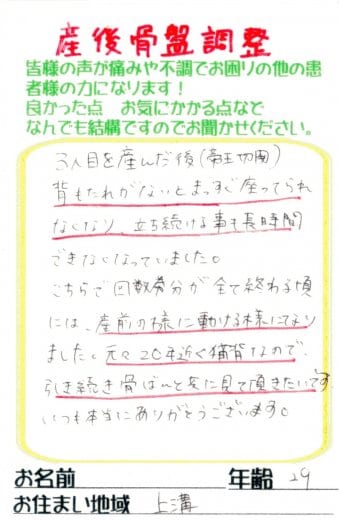 産後骨盤調整
皆様の声が痛みや不調でお困りの他の患
者様の力になります！
良かった点　お気にかかる点など
なんでも結構ですのでお聞かせください。
3人目を産んだ後(帝王切開)
背もたれがないとまっすぐ座ってられ
なくなり、立ち続ける事も長時間
できなくなっていました。
こちらで回数券分が全て終わる頃
には、産前の様に動ける様になり
ました。元々20年近く猫背なので、
引き続き骨ばんと共に見て頂きたいです
いつも本当にありがとうございます。
お名前　年齢 29
お住まい地域 上溝